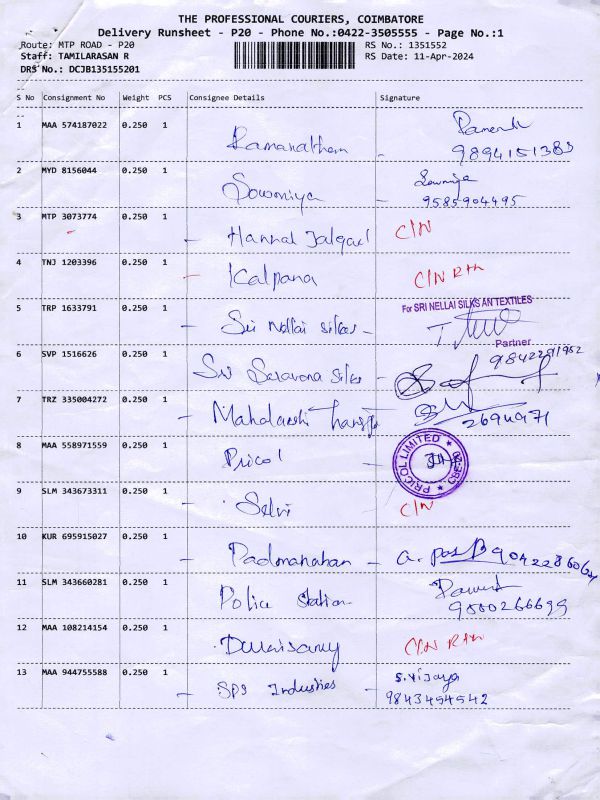 THE PROFESSIONAL COURIERS, COIMBATORE
Delivery Runsheet - P20 - Phone No.:0422-3505555 - Page No.:1
Route: MTP ROAD - P20 RS No.: 1351552
Staff: TAMILARASAN R RS Date: 11-Apr-2024
DRS No.: DCJB135155201
S No Consignment No Weight PCS Consignee Details Signature
--
1 MAA 574187022 0.250 1 Ramanathan
9894151383
2 MYD 8156044 0.250 1 Sowmiya - Sowmiya
9585904495
3 MTP 3073774 0.250 1 - C/N
4 TNJ 1203396 0.250 1 - Kalpana C/N
5 TRP 1633791 0.250 1 - Sri Nellai silks -
For SRI NELLAI SILKS AN TEXTILES
Partner
6 SVP 1516626 0.250 1 Sri Saravana silks
7 TRZ 335004272 0.250 1 -
8 MAA 558971559 0.250 1 Pricol -
PRICOL LIMITED
9 SLM 343673311 0.250 1 - Selvi C/N
10 KUR 695915027 0.250 1 - Padmanaban -
11 SLM 343660281 0.250 1 Police Station
12 MAA 108214154 0.250 1 C/N
13 MAA 944755588 0.250 1 - SPS Industries - S. Vijaya
9843454542